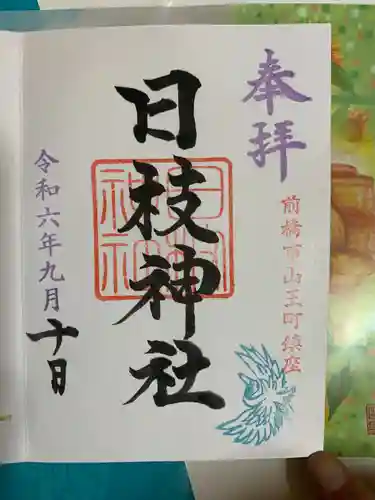 奉拝
前橋市山王町鎮座
日枝神社
令和六年九月
十日